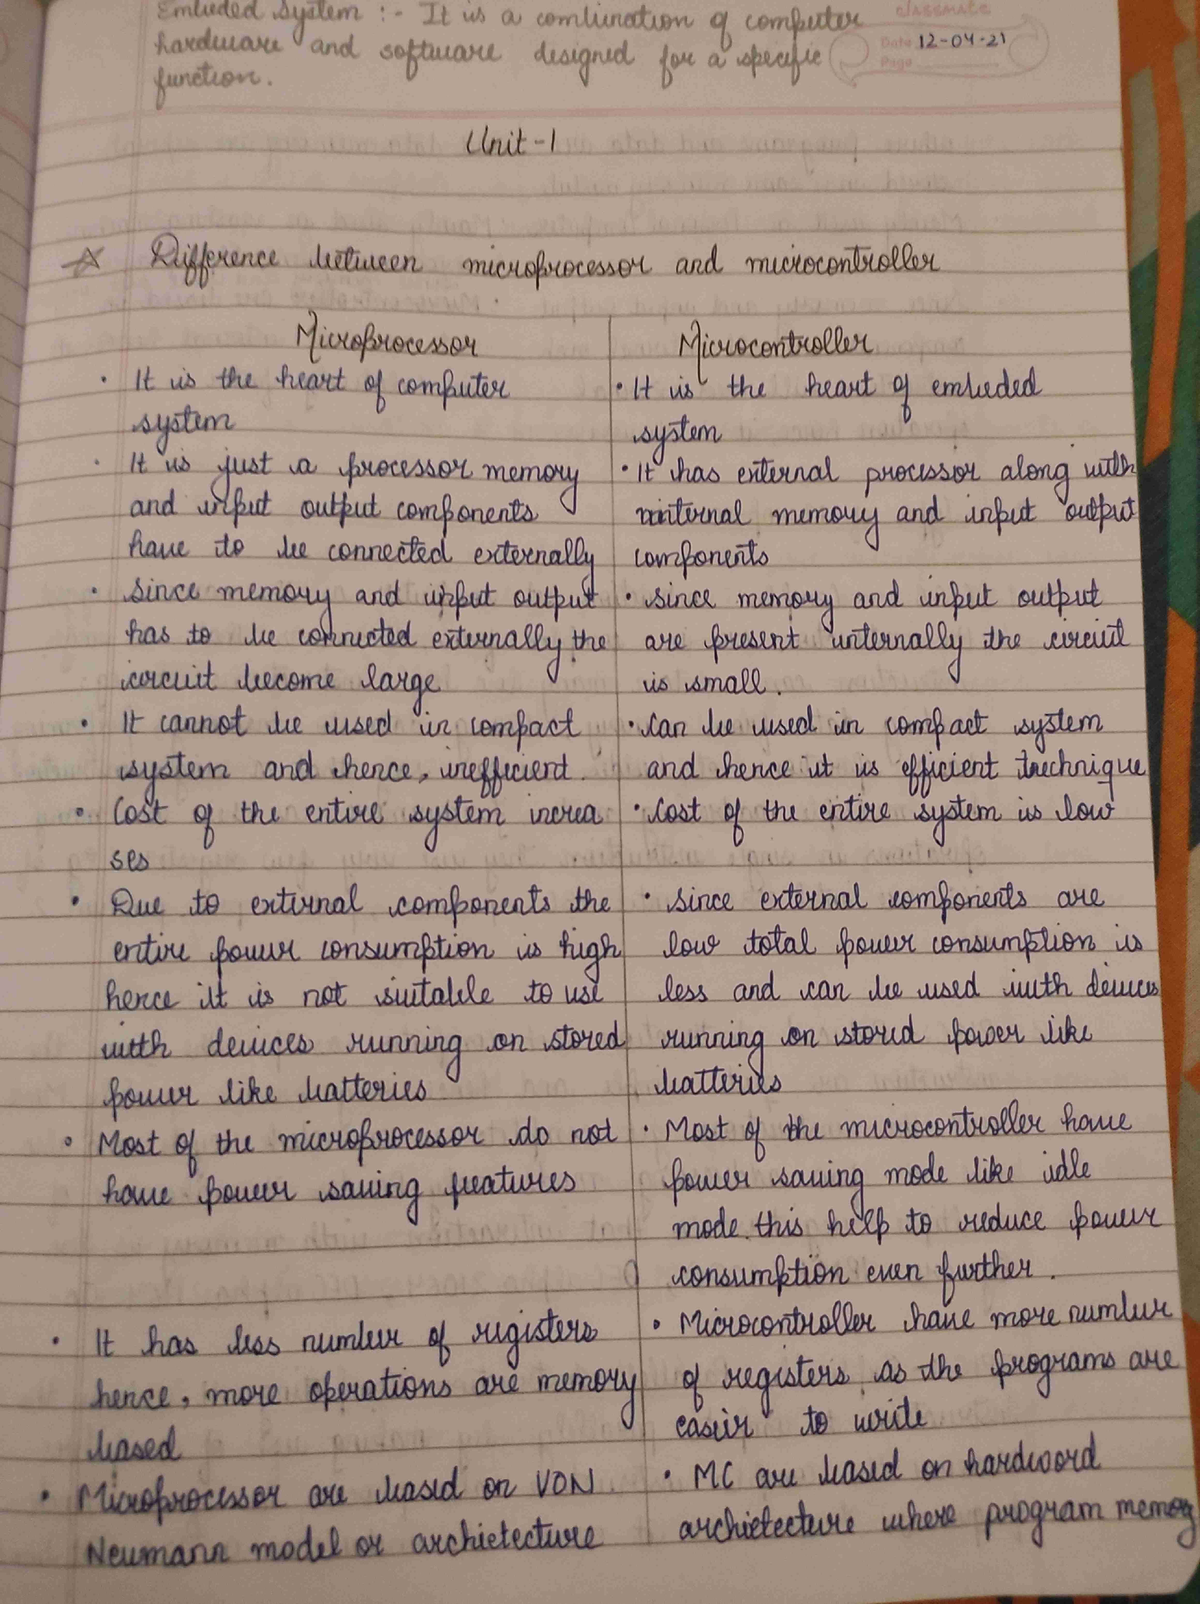 Embeded System :- It is a combination of computer
hardware and software designed for a specific
function.
classmate
Date 12-04-21
Page
Unit-1
Difference between microprocessor and microcontroller
Microprocessor
• It is the heart of computer
system
• It is just a processor memory
and input output components
have to be connected externally
• Since memory and input output
has to be connected externally the
circuit become large
• It cannot be used in compact
system and hence, inefficient.
• Cost of the entire system increa
ses
• Due to external components the
entire power consumption is high
hence it is not suitable to use
with devices running on stored
power like batteries
• Most of the microprocessor do not
have power saving features
• It has less number of registers
hence, more operations are memory
based
• Microprocessor are based on VON
Neumann model or archietecture
Microcontroller
• It is the heart of embeded
system
• It has external processor along with
internal memory and input output
components
• Since memory and input output
are present internally the circuit
is small.
• Can be used in compact system
and hence it is efficient technique
• Cost of the entire system is low
• Since external components are
low total power consumption is
less and can be used with devices
running on stored power like
batteries
• Most of the microcontroller have
power saving mode like idle
mode. this help to reduce power
consumption even further.
• Microcontroller have more number
of registers, as the programs are
easier to write
• MC are based on hardword
archietecture where program memory